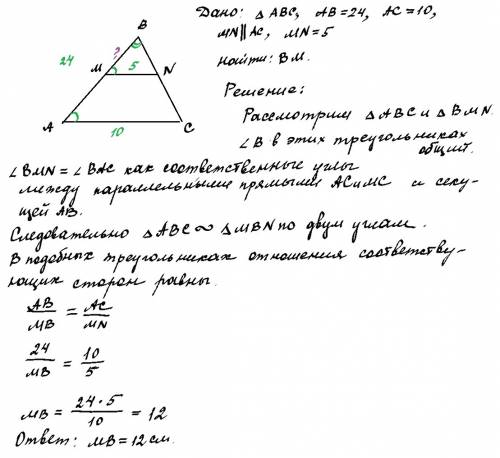 Дано: △ ABC, AB=24, AC=10,
MN∥AC, MN=5
Найти: BM.
Решение:
Рассмотрим △ABC и △BMN.
∠B в этих треугольниках
общий.
B
?
24
M
5
N
A
10
C
∠BMN = ∠BAC как соответственные углы
между параллельными прямыми AC и MC и секу-
щей AB.
Следовательно △ABC ∞ △MBN по двум углам.
В подобных треугольниках отношения соответству-
ющих сторон равны.
AB/MB = AC/MN
24/MB = 10/5
MB = 24·5/10 = 12
Ответ: MB = 12 см.